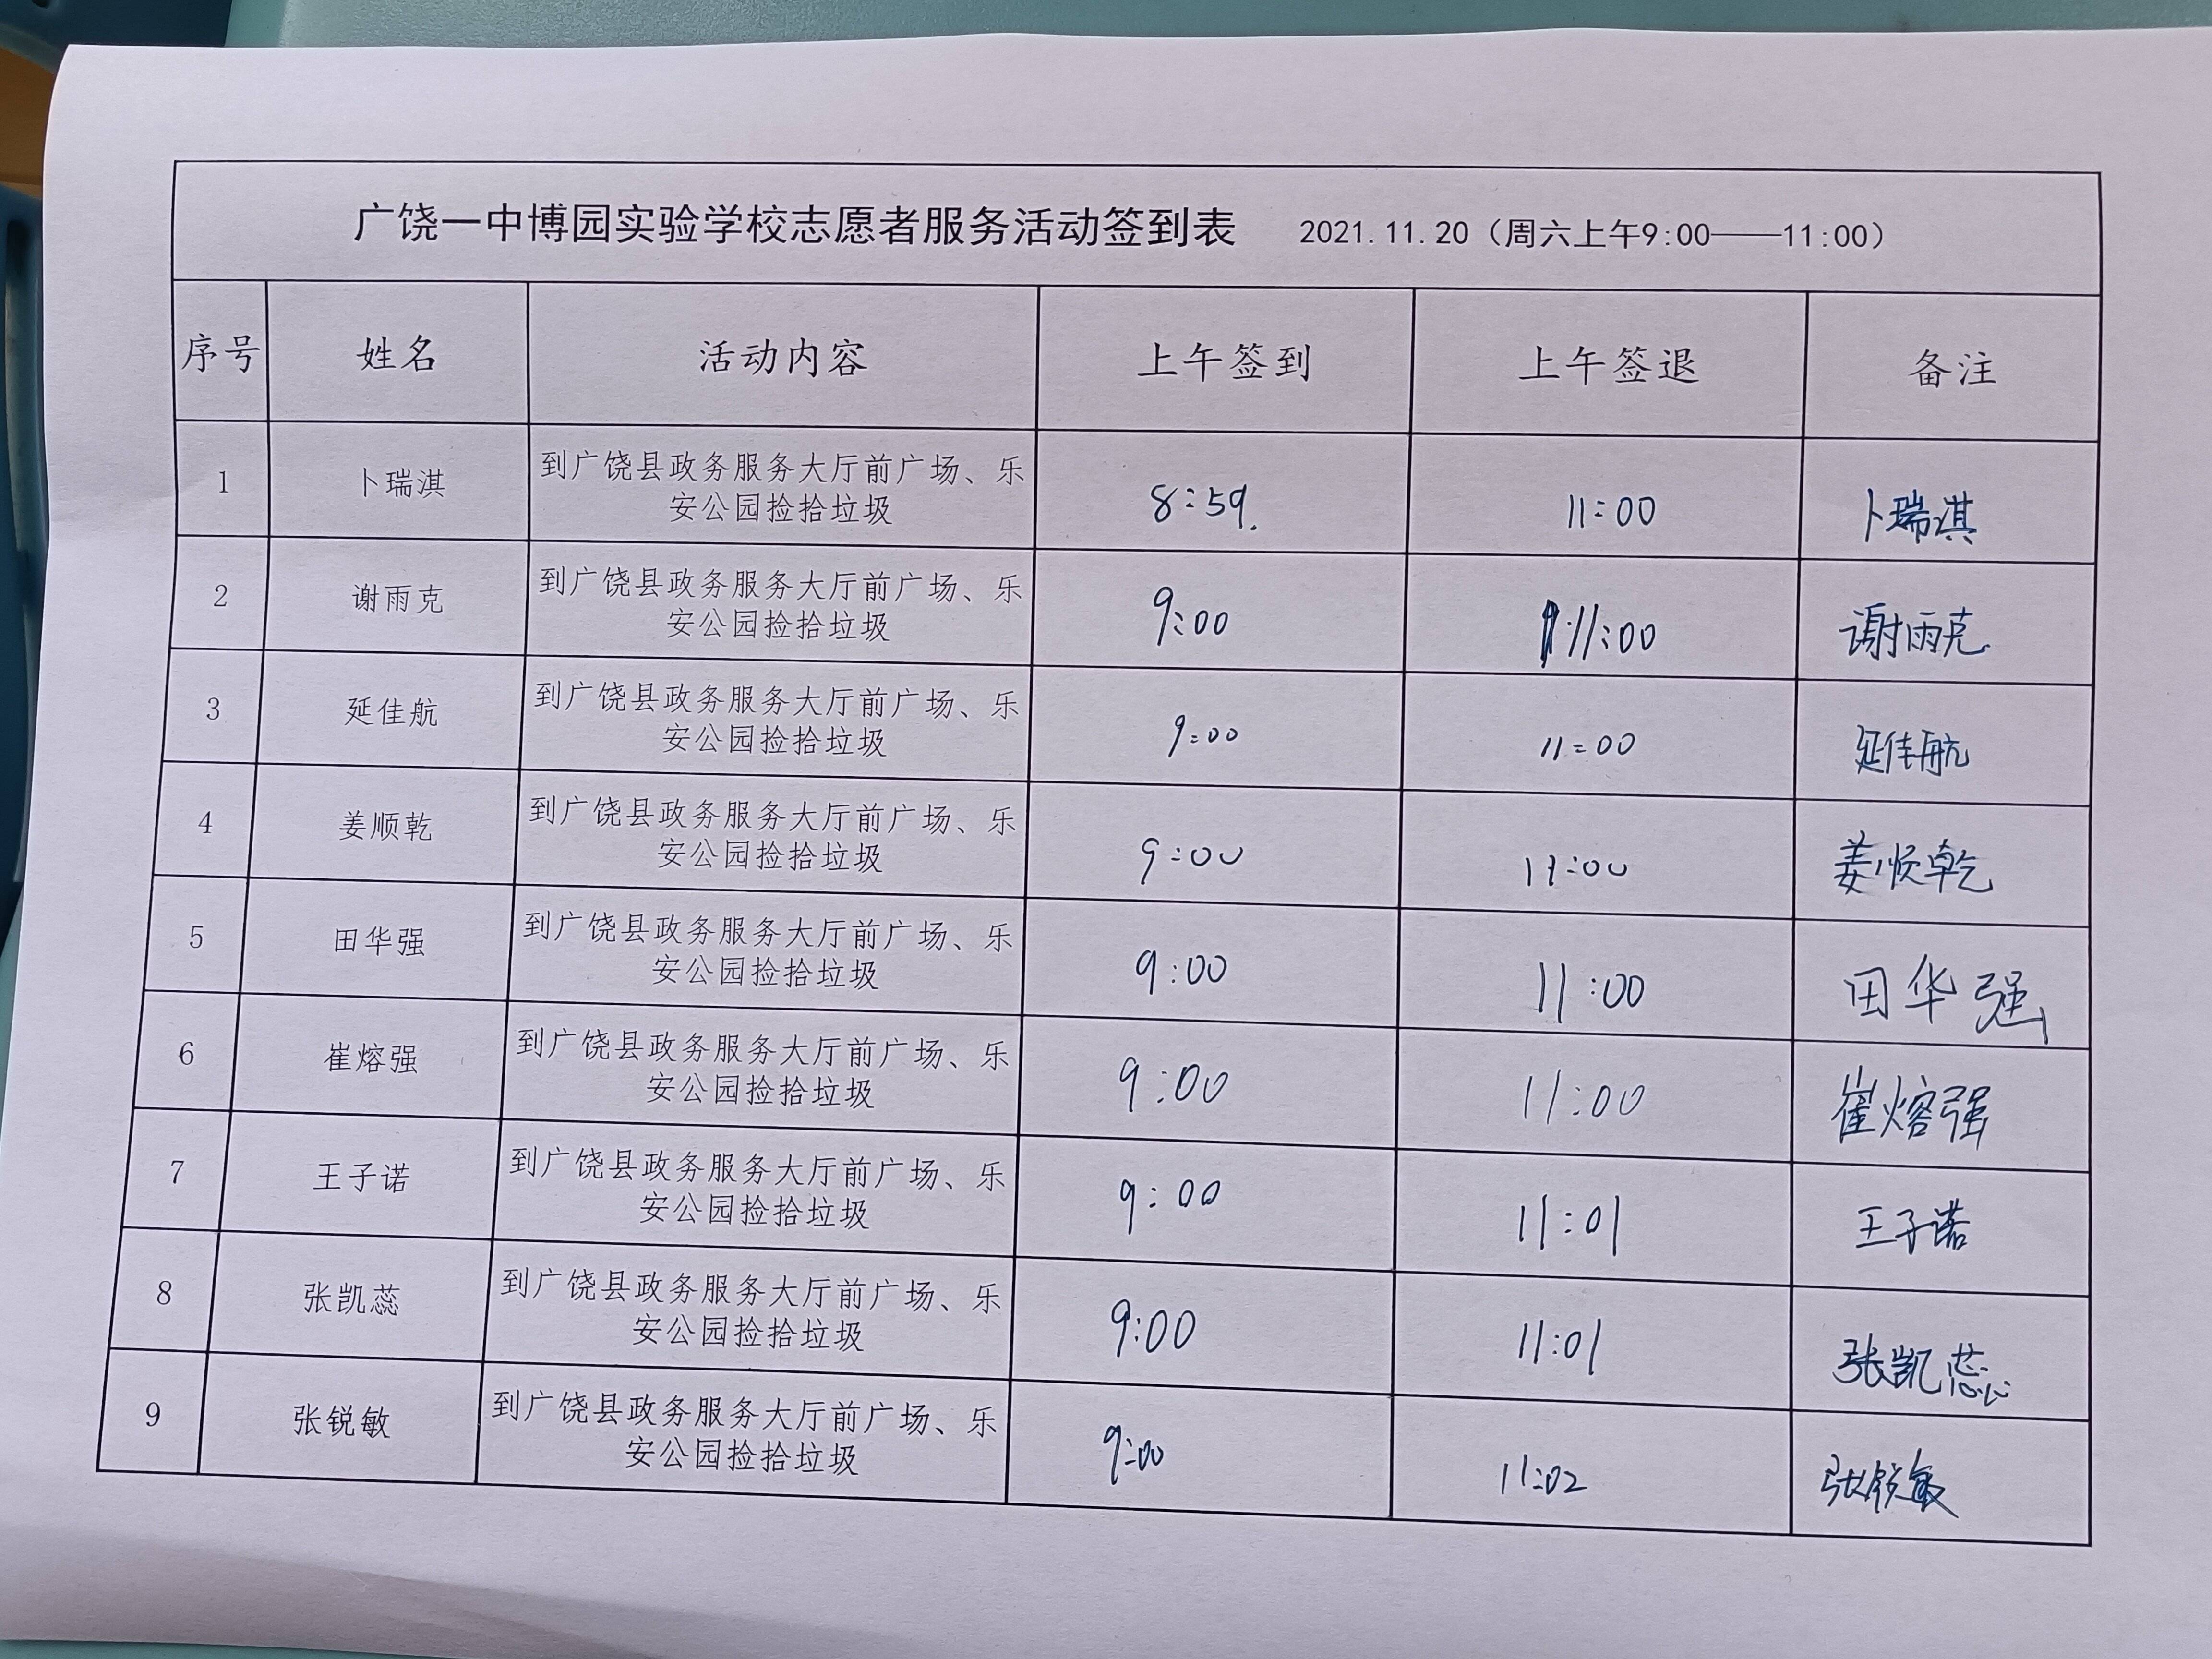 广饶一中博园实验学校志愿者服务活动签到表 2021.11.20（周六上午9:00——11:00）
序号 姓名 活动内容 上午签到 上午签退 备注
1 卜瑞淇 到广饶县政务服务大厅前广场、乐 8:59. 11:00 卜瑞淇
安公园捡拾垃圾
2 谢雨克 到广饶县政务服务大厅前广场、乐 9:00 11:00 谢雨克
安公园捡拾垃圾
3 延佳航 到广饶县政务服务大厅前广场、乐 9:00 11:00 延佳航
安公园捡拾垃圾
4 姜顺乾 到广饶县政务服务大厅前广场、乐 9:00 11:00 姜顺乾
安公园捡拾垃圾
5 田华强 到广饶县政务服务大厅前广场、乐 9:00 11:00 田华强
安公园捡拾垃圾
6 崔熔强 到广饶县政务服务大厅前广场、乐 9:00 11:00 崔熔强
安公园捡拾垃圾
7 王子诺 到广饶县政务服务大厅前广场、乐 9:00 11:01 王子诺
安公园捡拾垃圾
8 张凯蕊 到广饶县政务服务大厅前广场、乐 9:00 11:01 张凯蕊
安公园捡拾垃圾
9 张锐敏 到广饶县政务服务大厅前广场、乐 9:00 11:02 张锐敏
安公园捡拾垃圾